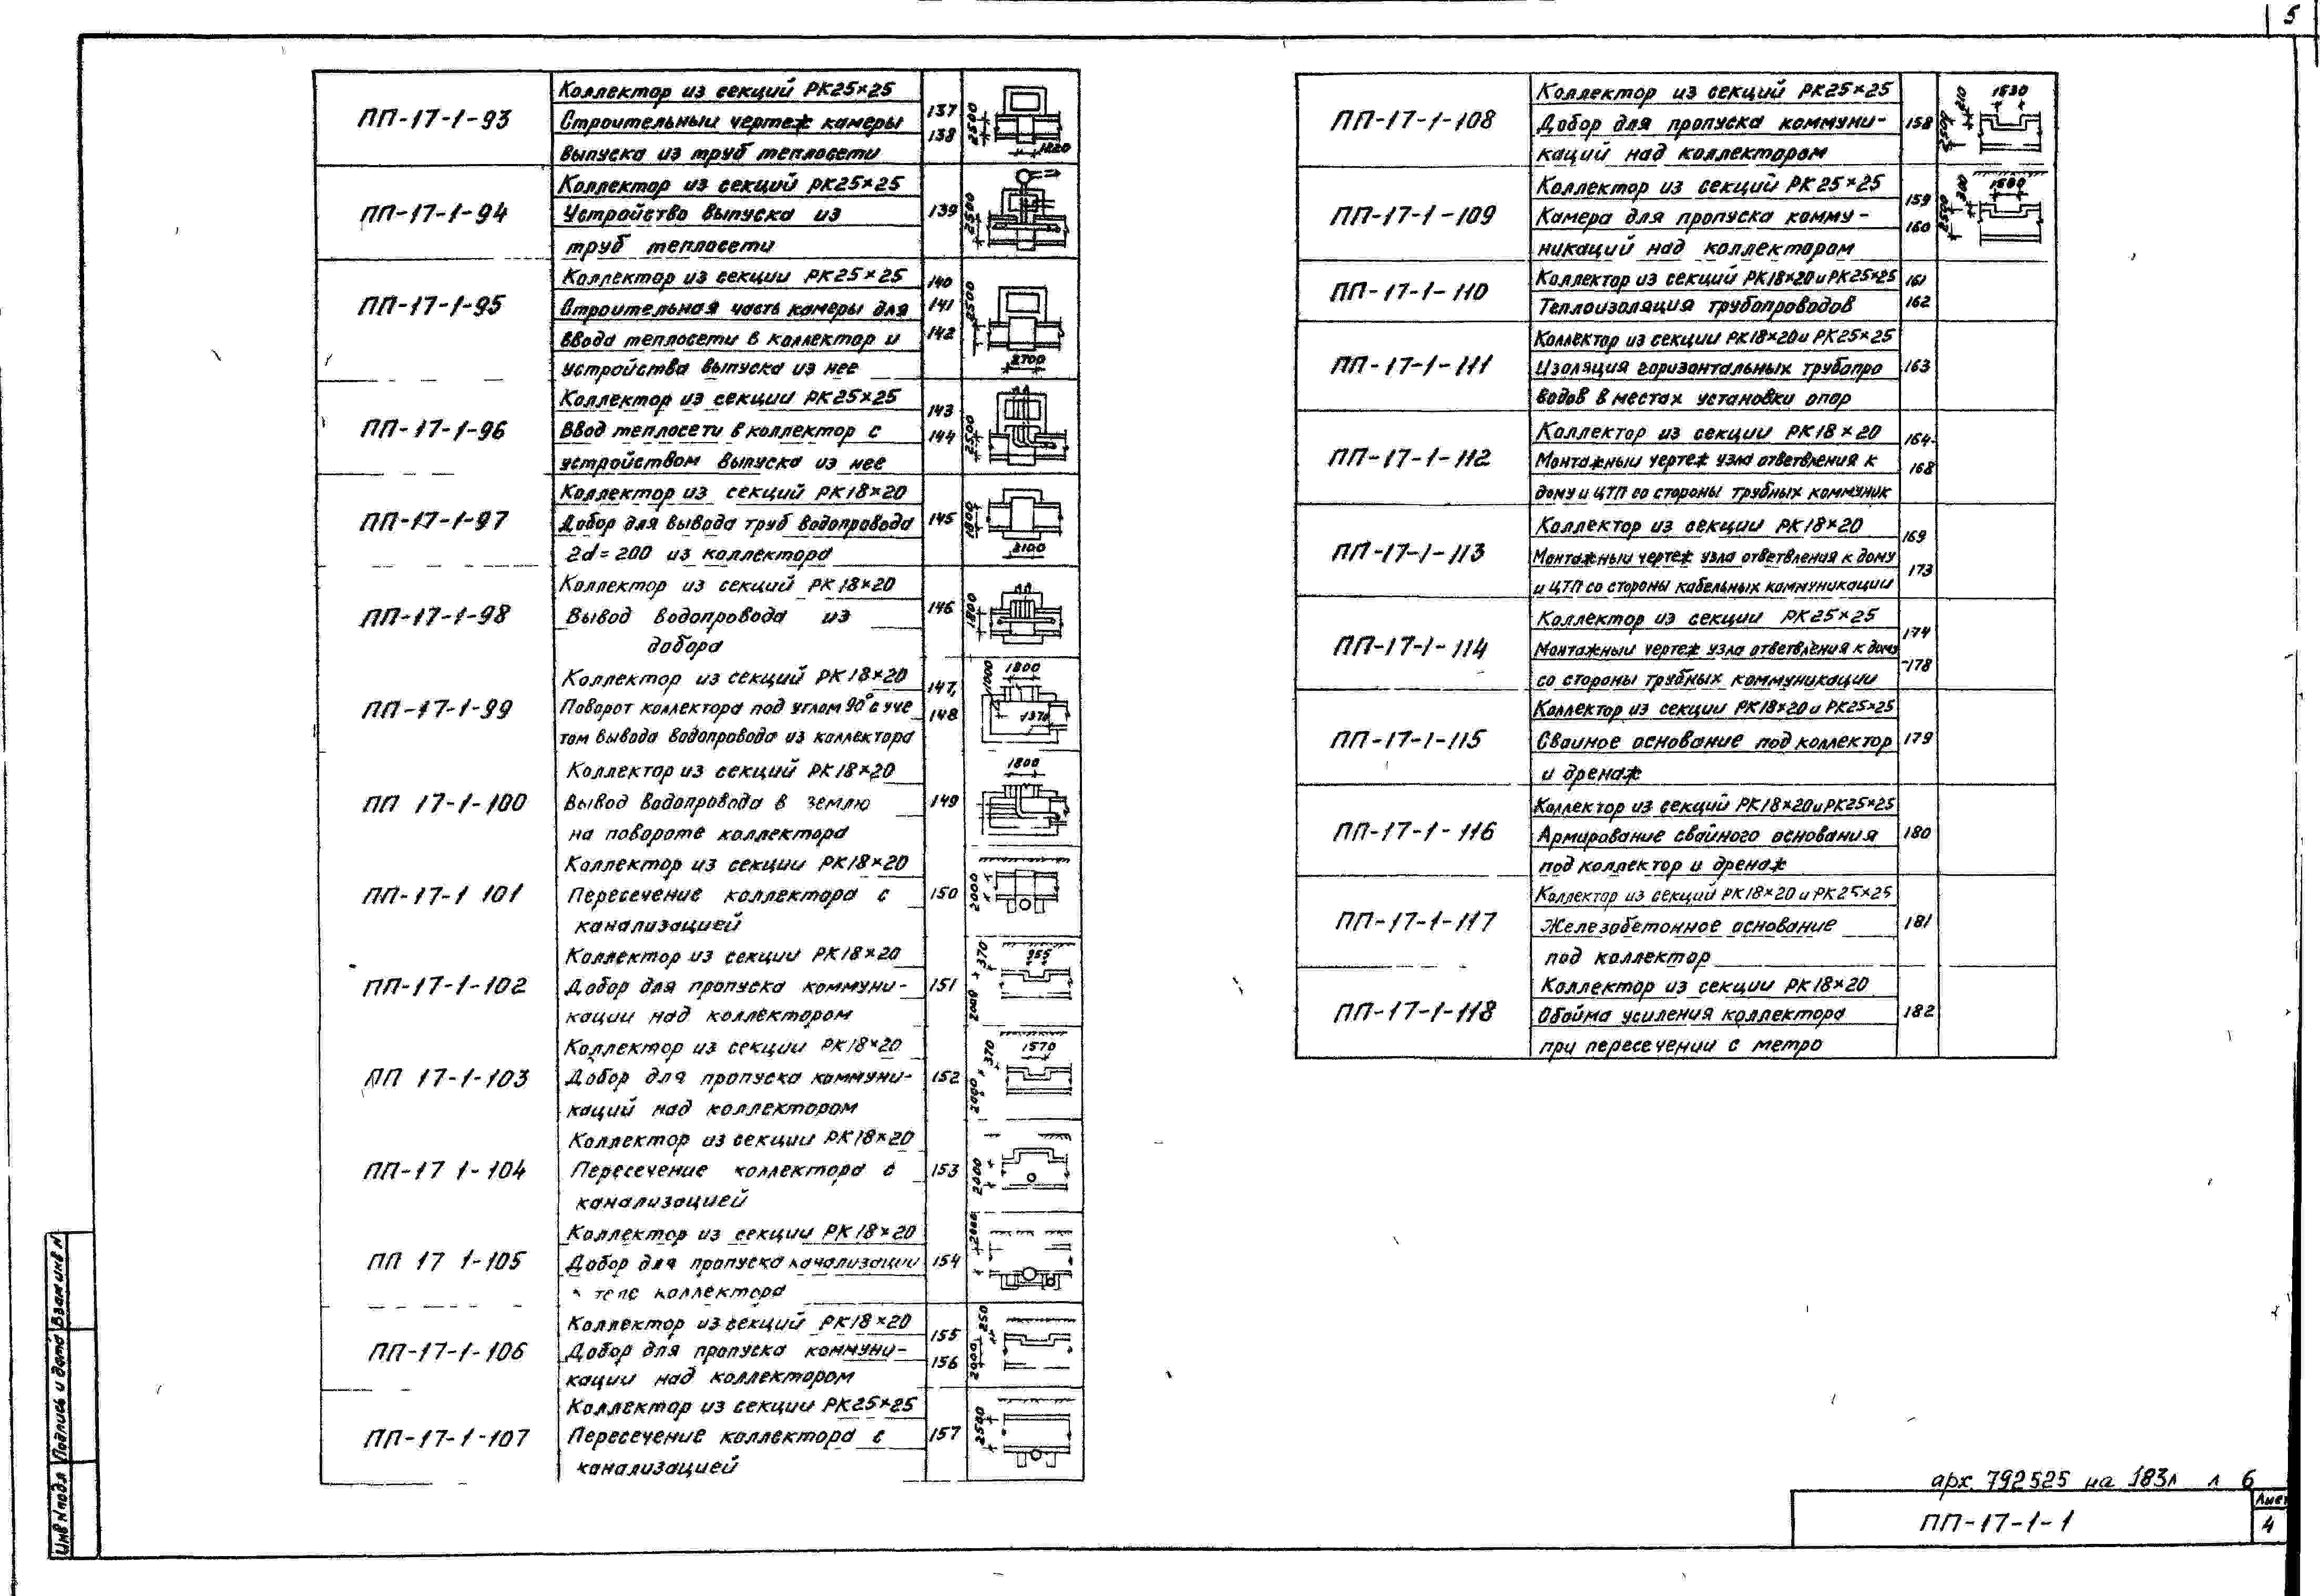 5
ПП-17-1-93
Коллектор из секций РК25×25
Строительный чертеж камеры
выпуска из труб теплосети
137
138
2500
1220
ПП-17-1-94
Коллектор из секций РК25×25
Устройство выпуска из
труб теплосети
139
2500
ПП-17-1-95
Коллектор из секции РК25×25
Строительная часть камеры для
ввода теплосети в коллектор и
устройства выпуска из нее
140
141
142
2500
2700
ПП-17-1-96
Коллектор из секций РК25×25
Ввод теплосети в коллектор с
устройством выпуска из нее
143
144
2500
ПП-17-1-97
Коллектор из секций РК18×20
Добор для вывода труб водопровода
2d=200 из коллектора
145
1800
2100
ПП-17-1-98
Коллектор из секций РК18×20
Вывод водопровода из
добора
146
1800
ПП-17-1-99
Коллектор из секций РК18×20
Поворот коллектора под углом 90° с уче
том вывода водопровода из коллектора
147,
148
1000
1800
1370
ПП 17-1-100
Коллектор из секций РК18×20
Вывод водопровода в землю
на повороте коллектора
149
1800
ПП-17-1 101
Коллектор из секции РК18×20
Пересечение коллектора с
канализацией
150
2000
ПП-17-1-102
Коллектор из секции РК18×20
Добор для пропуска коммуни-
кации над коллектором
151
2000
370
955
ПП 17-1-103
Коллектор из секции РК18×20
Добор для пропуска коммуни-
каций над коллектором
152
2000
370
1570
ПП-17 1-104
Коллектор из секции РК18×20
Пересечение коллектора с
канализацией
153
2000
ПП 17 1-105
Коллектор из секции РК18×20
Добор для пропуска канализации
теле коллектора
154
2000
ПП-17-1-106
Коллектор из секций РК18×20
Добор для пропуска коммуни-
кации над коллектором
155
156
2000
250
ПП-17-1-107
Коллектор из секции РК25×25
Пересечение коллектора с
канализацией
157
2500
ПП-17-1-108
Коллектор из секций РК25×25
Добор для пропуска коммуни-
каций над коллектором
158
2500
210
1530
ПП-17-1-109
Коллектор из секций РК25×25
Камера для пропуска комму-
никаций над коллектором
159
160
2500
300
1500
ПП-17-1-110
Коллектор из секций РК18×20 и РК25×25
Теплоизоляция трубопроводов
161
162
ПП-17-1-111
Коллектор из секции РК18×20 и РК25×25
Изоляция горизонтальных трубопро
водов в местах установки опор
163
ПП-17-1-112
Коллектор из секции РК18×20
Монтажный чертеж узла ответвления к
дому и ЦТП со стороны трубных коммуник
164-
168
ПП-17-1-113
Коллектор из секции РК18×20
Монтажный чертеж узла ответвления к дому
и ЦТП со стороны кабельных коммуникации
169
173
ПП-17-1-114
Коллектор из секции РК25×25
Монтажный чертеж узла ответвления к дому
со стороны трубных коммуникации
174
-178
ПП-17-1-115
Коллектор из секции РК18×20 и РК25×25
Сваиное основание под коллектор
и дренаж
179
ПП-17-1-116
Коллектор из секций РК18×20 и РК25×25
Армирование свайного основания
под коллектор и дренаж
180
ПП-17-1-117
Коллектор из секций РК18×20 и РК25×25
Железобетонное основание
под коллектор
181
ПП-17-1-118
Коллектор из секции РК18×20
Обойма усиления коллектора
при пересечении с метро
182
Инв N подл
Подпись и дата
Взам инв N
арх. 792525 на 183л л 6
ПП-17-1-1
Лист
4